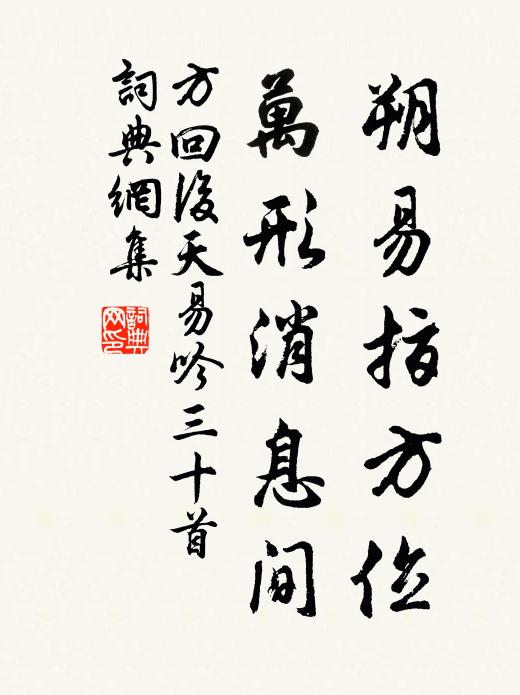 朔易指方位
萬形消息間
方回後天易吟三十首
詞典網集
詞典网印